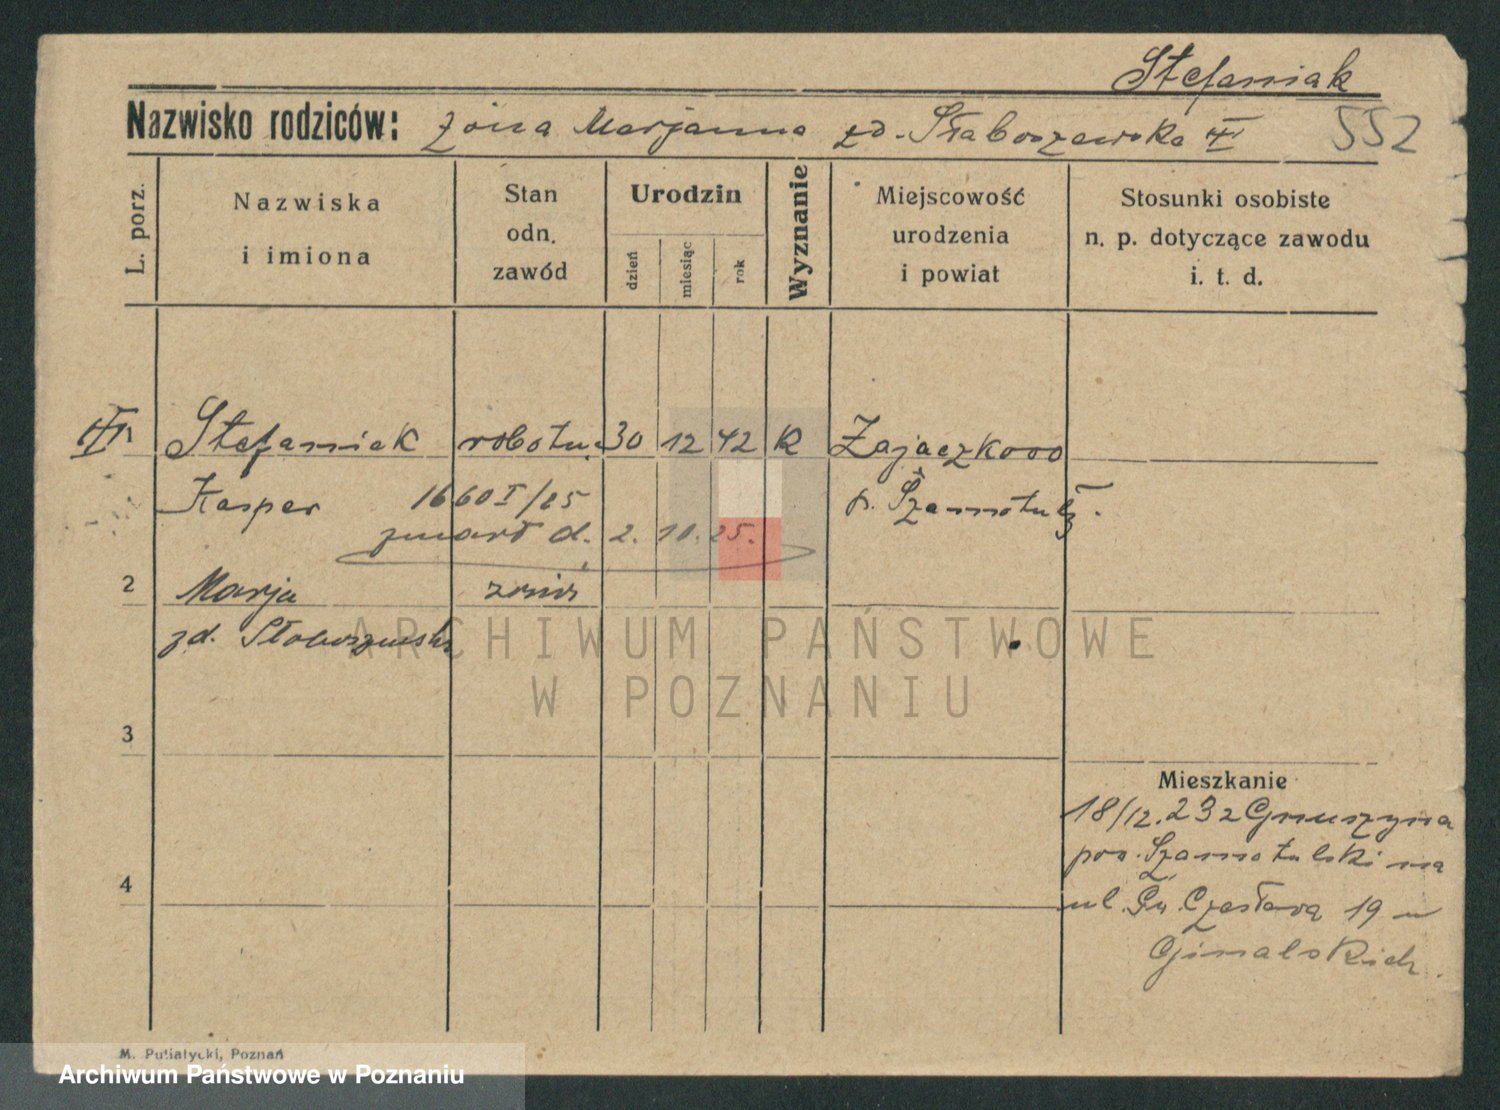 Stefaniak
Nazwisko rodziców: żona Marjanna zd. Słaboszewska III 552
L. porz.
Nazwiska
i imiona
Stan
odn.
zawód
Urodzin
dzień
miesiąc
rok
Wyznanie
Miejscowość
urodzenia
i powiat
Stosunki osobiste
n. p. dotyczące zawodu
i. t. d.
Stefaniak robotn. 30 12 42 K Zajączkowo
Kasper 1660 I/25 p. Szamotuły
zmarł d. 2. 10. 25.
2 Marja
zd. Słaboszewska
ARCHIWUM PAŃSTWOWE
W POZNANIU
3
Mieszkanie
18/12. 23 z Gnuszyna
pow. Szamotulski na
4
ul. Czesława 19 u
M. Putiatycki, Poznań
Archiwum Państwowe w Poznaniu